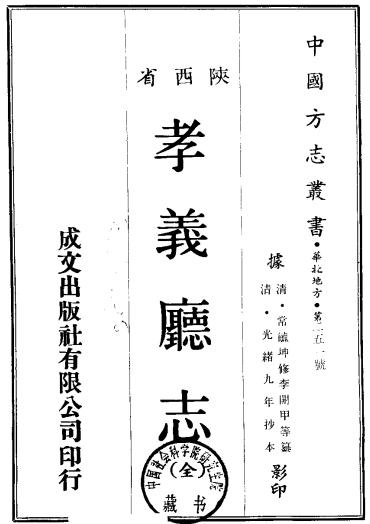 中國方志叢書·華北地方·第二五一號
據
清·常毓坤修李開甲等纂
清·光緒九年抄本
影印
陝西省
孝義廳志
(全)
中国社会科学院研究生院
藏书
成文出版社有限公司印行